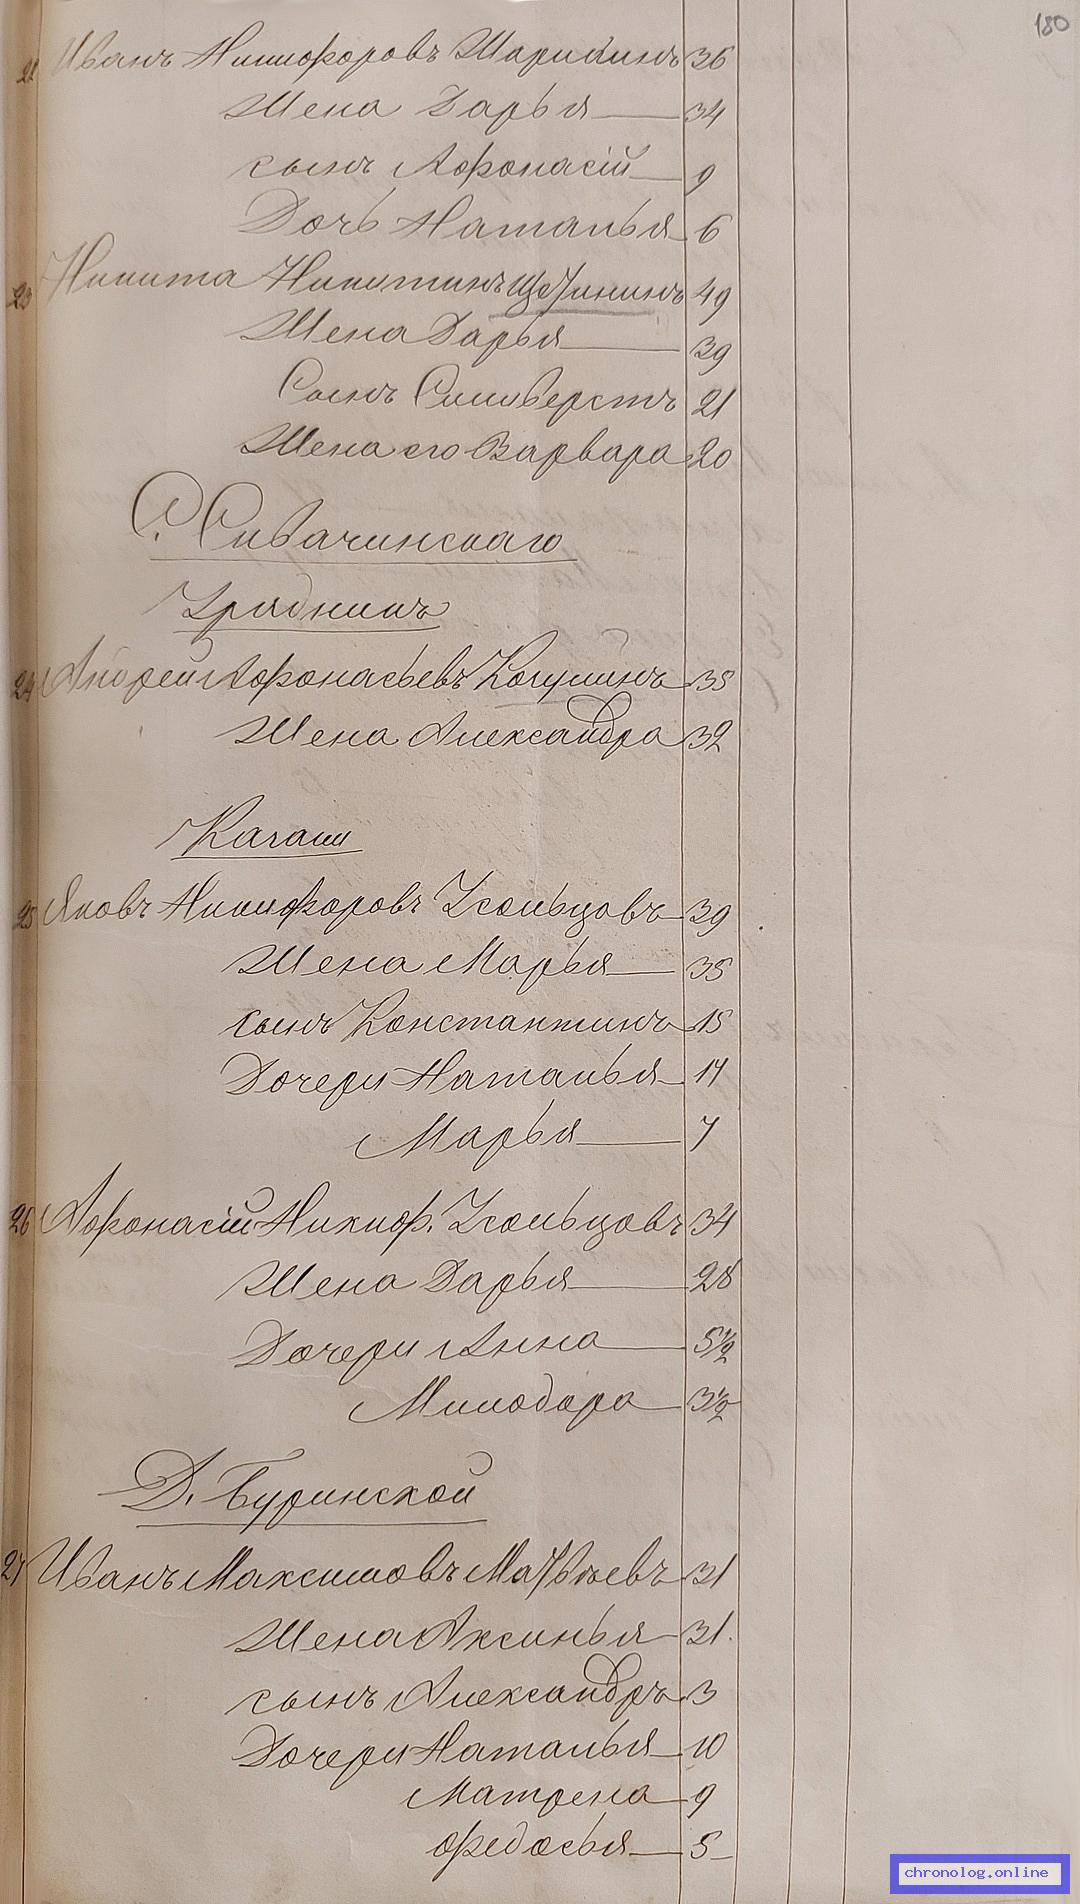 180
22 Иванъ Никифоровъ Шарикинъ 36
Жена Дарья 34
сынъ Афонасій 9
Дочь Наталья 6
23 Никита Никитинъ Щетининъ 49
Жена Дарья 39
Сынъ Силиверстъ 21
Жена его Варвара 20
С. Сивачинскаго
Урядникъ
24 Андрей Афонасьевъ 35
Жена Александра 32
Казаки
25 Яковъ Никифоровъ Усольцовъ 39
Жена Марья 35
сынъ Константинъ 15
Дочери Наталья 14
Марья 7
26 Афонасій Никиф. Усольцовъ 34
Жена Дарья 28
Дочери Анна 5 1/2
Минодора 3 1/2
Д. Буринской
27 Иванъ Максимовъ Матвѣевъ 31
Жена Аксинья 31.
сынъ Александръ 3
Дочери Наталья 10
Матрена 9
Федосья 5
chronolog.online